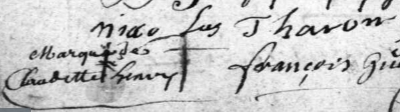 nicolas Tharon
Marque de
Claudette henry
françois